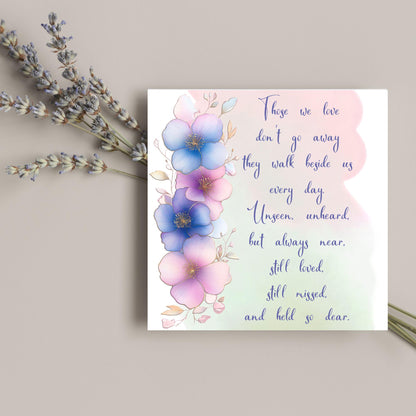 Those we love
don't go away
they walk beside us
every day.
Unseen, unheard,
but always near,
still loved,
still missed,
and held so dear.